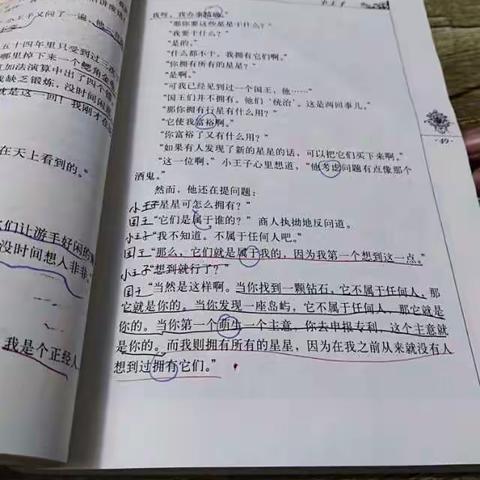 小王子又问了一遍
五十四年里只受到过三
哪里掉下来一个
加法演算中出了四个
我缺乏锻炼，没时间闲
就是这一回！我刚才在
在天上看到的。”
们让游手好闲的
没时间想入非非
我是个正经人
小王子
我呀，我办事精确。”
“那你要这些星星干什么？”
“我要干什么？”
“是的。”
“什么都不干，我拥有它们啊。”
“你拥有所有的星星？”
“是啊。”
“可我已经见到过一个国王，他……”
“国王们并不拥有。他们‘统治’。这是两回事儿。”
“那你拥有行星有什么用？”
“它使我富裕啊。”
“你富裕了又有什么用？”
“如果有人发现了新的星星的话，可以把它们买下来啊。”
“这一位啊，”小王子心里想道，“他考虑问题有点像那个
酒鬼。”
然而，他还在提问题：
小王子“星星可怎么拥有？”
国王“它们是属于谁的？”商人执拗地反问道。
小王子“我不知道。不属于任何人吧。”
国王“那么，它们就是属于我的，因为我第一个想到这一点。”
小王子“想到就行了？”
国王“当然是这样啊。当你找到一颗钻石，它不属于任何人，那
它就是你的。当你发现一座岛屿，它不属于任何人，那它就是
你的。当你第一个萌生一个主意，你去申报专利，这个主意就
是你的。而我则拥有所有的星星，因为在我之前从来就没有人
想到过拥有它们。”
·49·